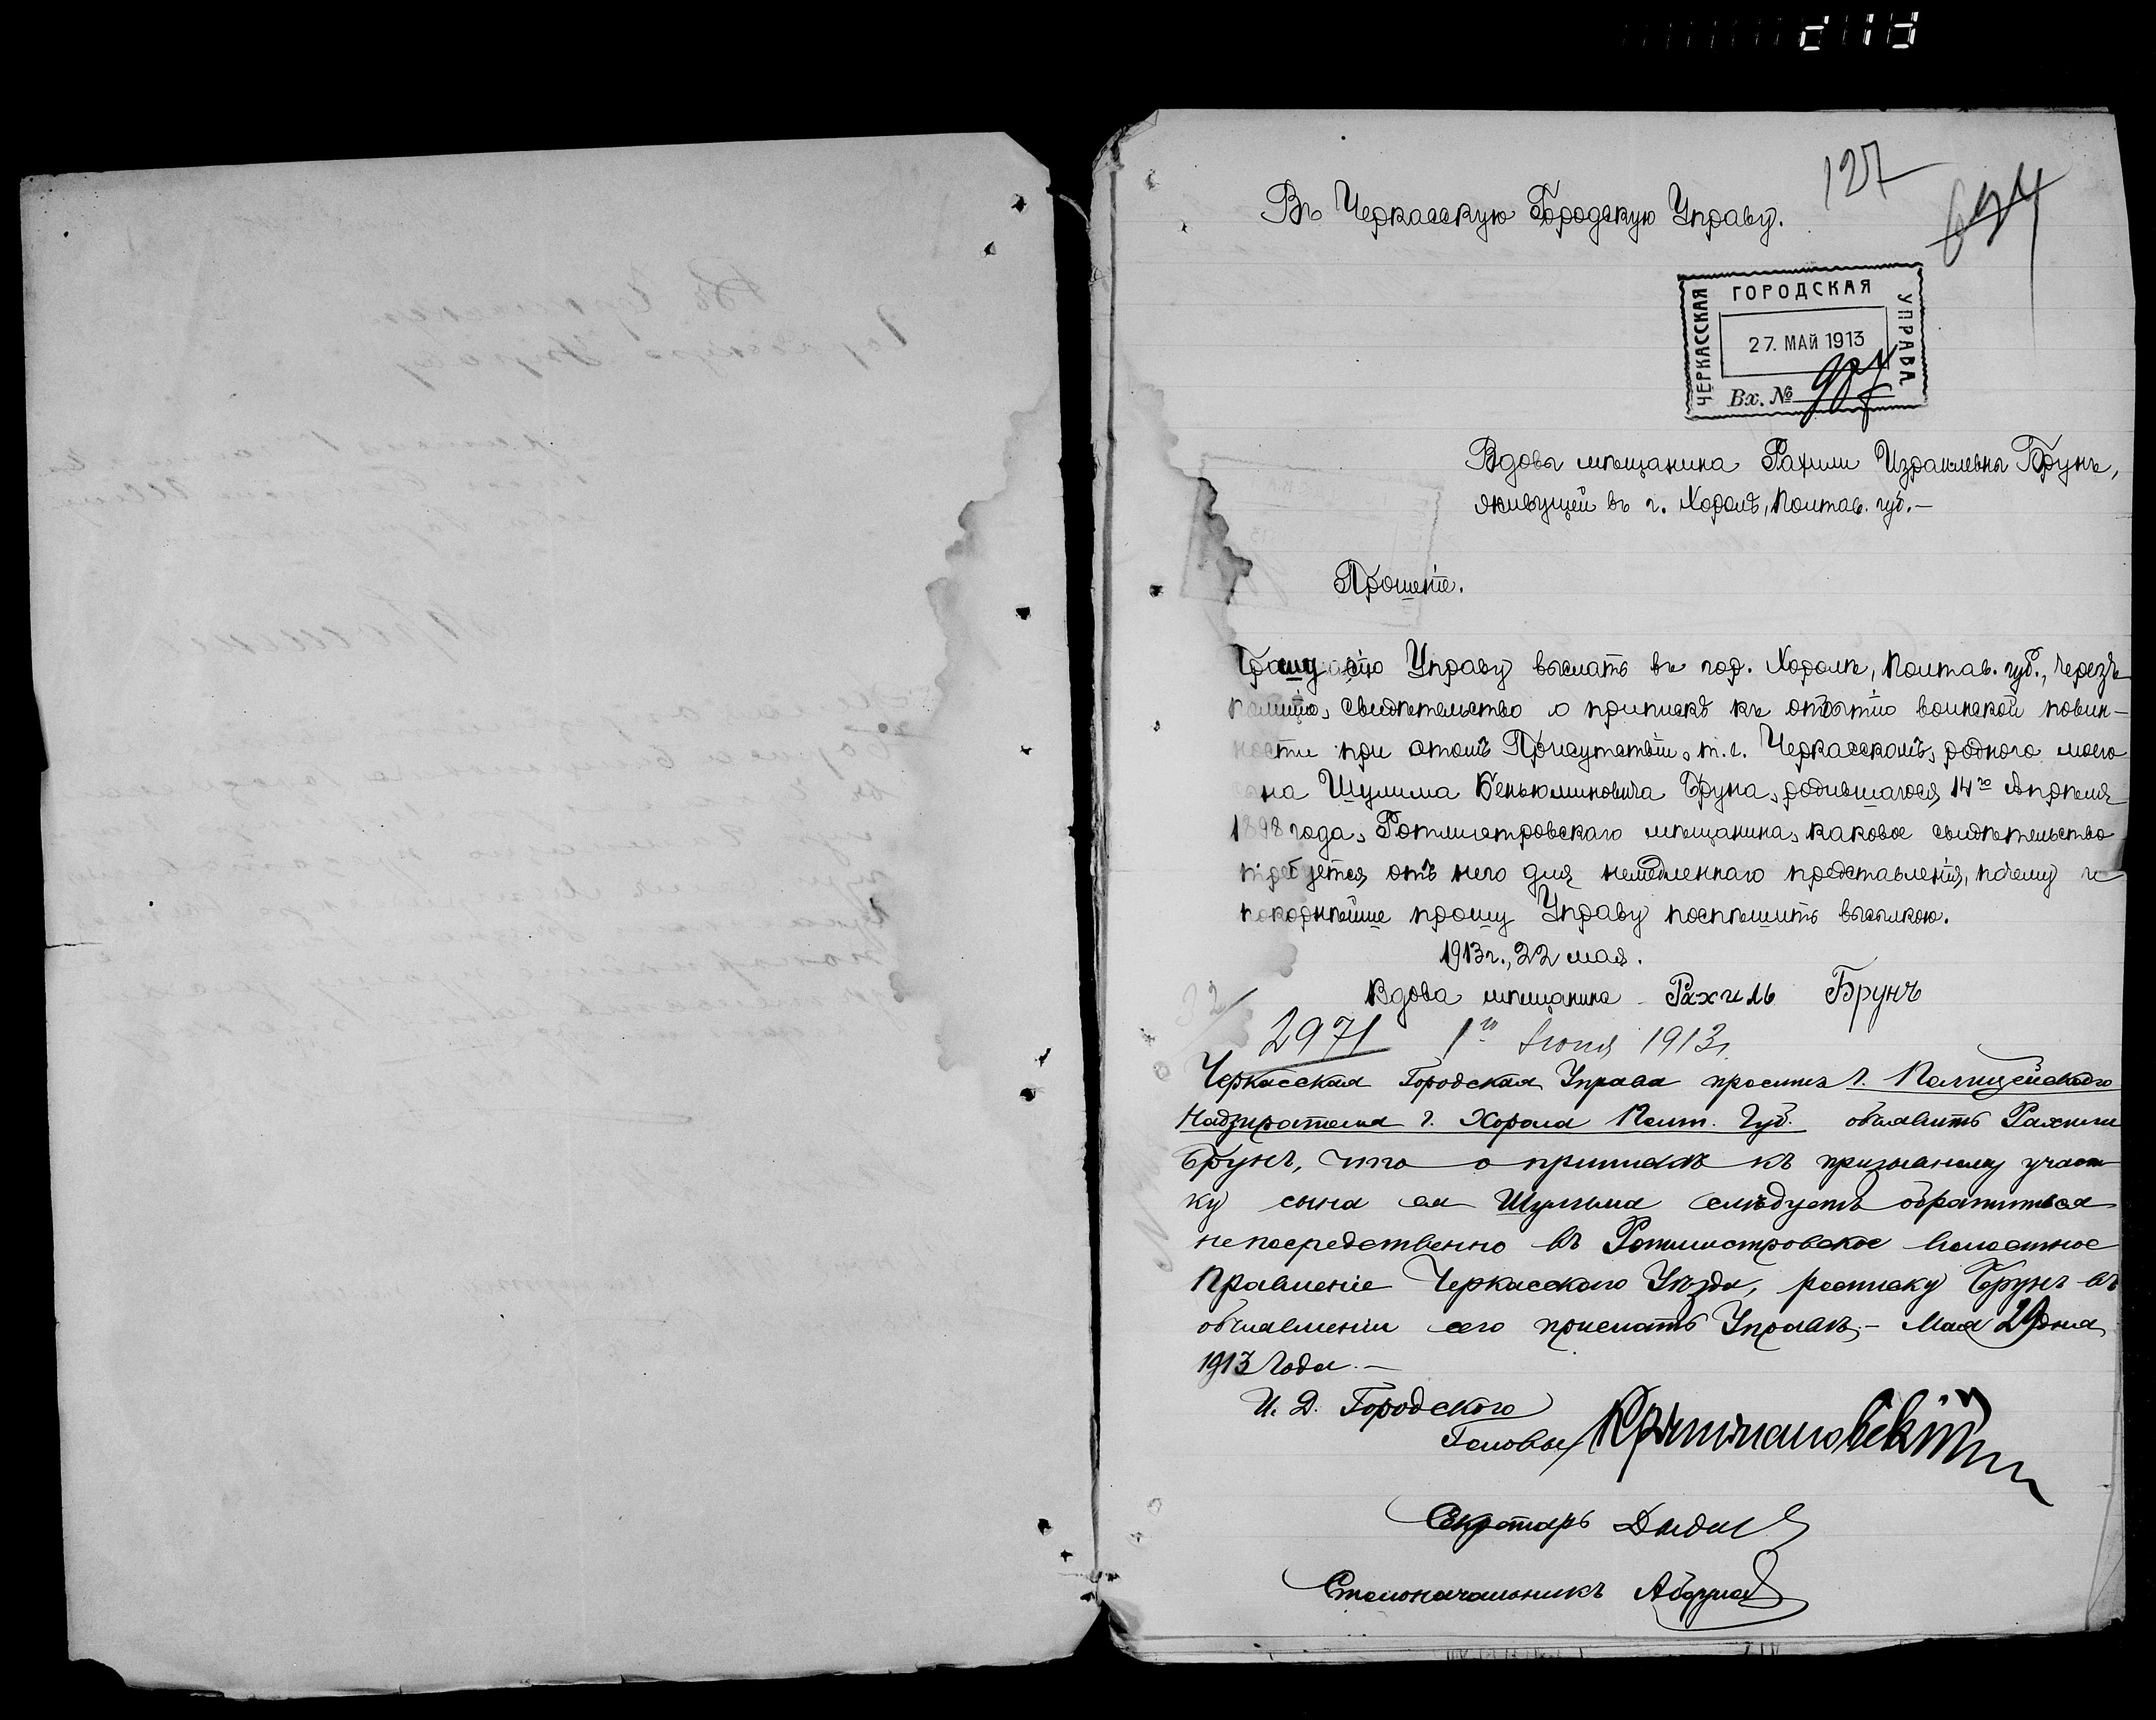 127
Въ Черкасскую Городскую Управу.
674
ЧЕРКАССКАЯ ГОРОДСКАЯ УПРАВА
27. МАЙ 1913
Вх. №
Вдовы мѣщанина Рахили Израилевны Брунъ,
живущей въ г. Хоролѣ, Полтав. губ.—
Прошенiе.
Прошу сiю Управу выслать въ гор. Хоролъ, Полтав. губ., черезъ
полицiю, свидѣтельство о припискѣ къ отбытiю воинской повин-
ности при этомъ Присутствiи, т. е. Черкасскомъ, родного моего
сына Шулима Беньюминовича Бруна, родившагося 14го Апрѣля
1898 года, Ротмистровскаго мѣщанина, каковое свидѣтельство
требуется отъ него для немедленнаго представленiя, почему и
покорнѣйше прошу Управу поспѣшить высылкою.
1913 г., 22 мая.
Вдова мѣщанина Рахиль Брунъ
2971 1го Iюня 1913 г.
Черкасская Городская Управа проситъ г. Полицейскаго
Надзирателя г. Хорола Полт. Губ. объявить Рахили
Брунъ, что о припискѣ къ призывному участ-
ку сына ея Шулима слѣдуетъ обратиться
непосредственно въ Ротмистровское Волостное
Правленiе Черкасскаго Уѣзда, росписку Брунъ въ
объявленiи сего прислать Управѣ.— Мая 29 дня
1913 Года.—
И. Д. Городского
Головы
Секретарь
Столоначальникъ